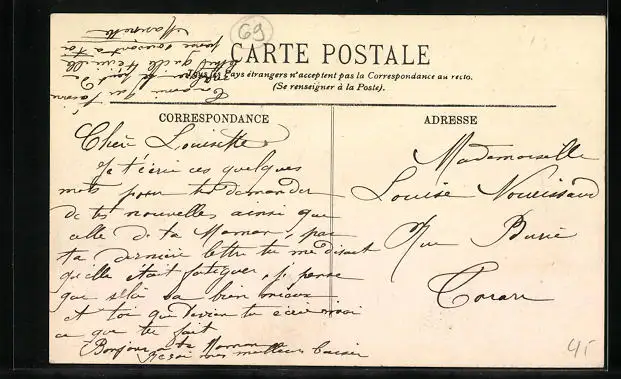 69
CARTE POSTALE
Tous les Pays étrangers n'acceptent pas la Correspondance au recto.
(Se renseigner à la Poste).
CORRESPONDANCE
Chère Louisette
Je t'écris ces quelques
mots pour te demander
de tes nouvelles ainsi que
celle de ta Maman, par
ta dernière lettre tu me disait
qu'elle était fatiguer, je pense
que sela va bien mieux
et toi que devien tu écri moi
ce que tu fait
Bonjour a ta Maman
Reçoi mes meilleurs baiser
Marinette
pense souvent a toi
ADRESSE
Mademoiselle
Louise
Rue
45